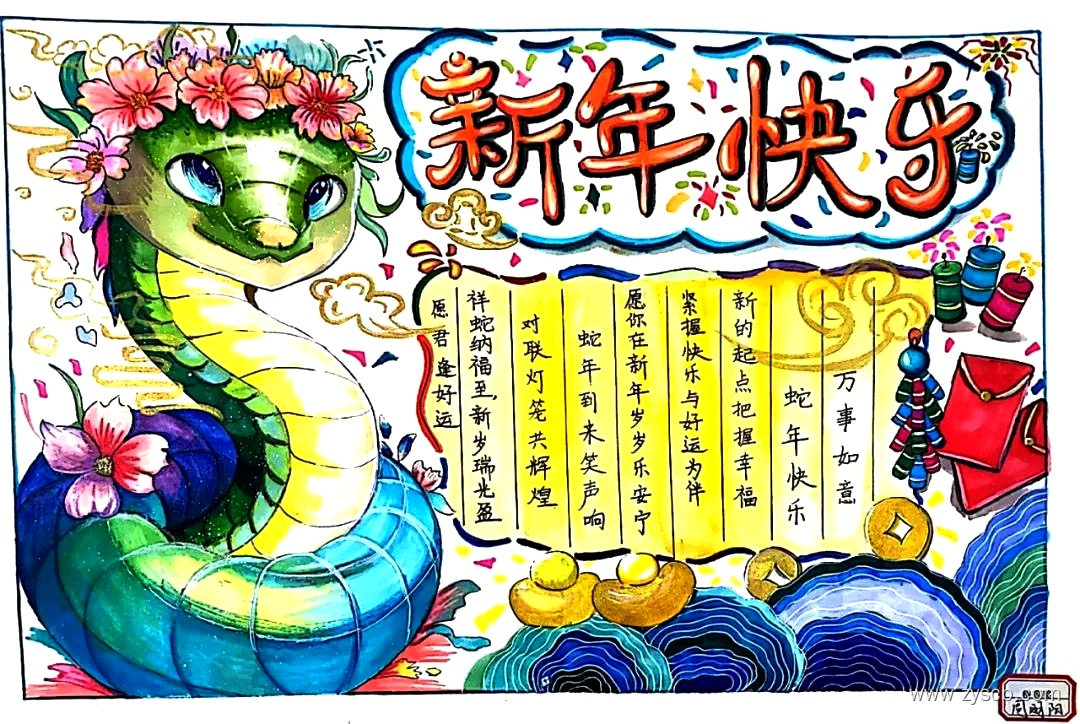 新年快乐
万事如意
蛇年快乐
新的起点把握幸福
紧握快乐与好运为伴
愿你在新年岁岁乐安宁
蛇年到来笑声响
对联灯笼共辉煌
祥蛇纳福至,新岁瑞光盈
愿君逢好运